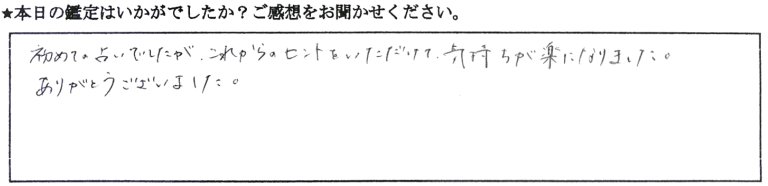 ★本日の鑑定はいかがでしたか？ご感想をお聞かせください。
初めての占いでしたが、これからのヒントをいただけて、気持ちが楽になりました。
ありがとうございました。